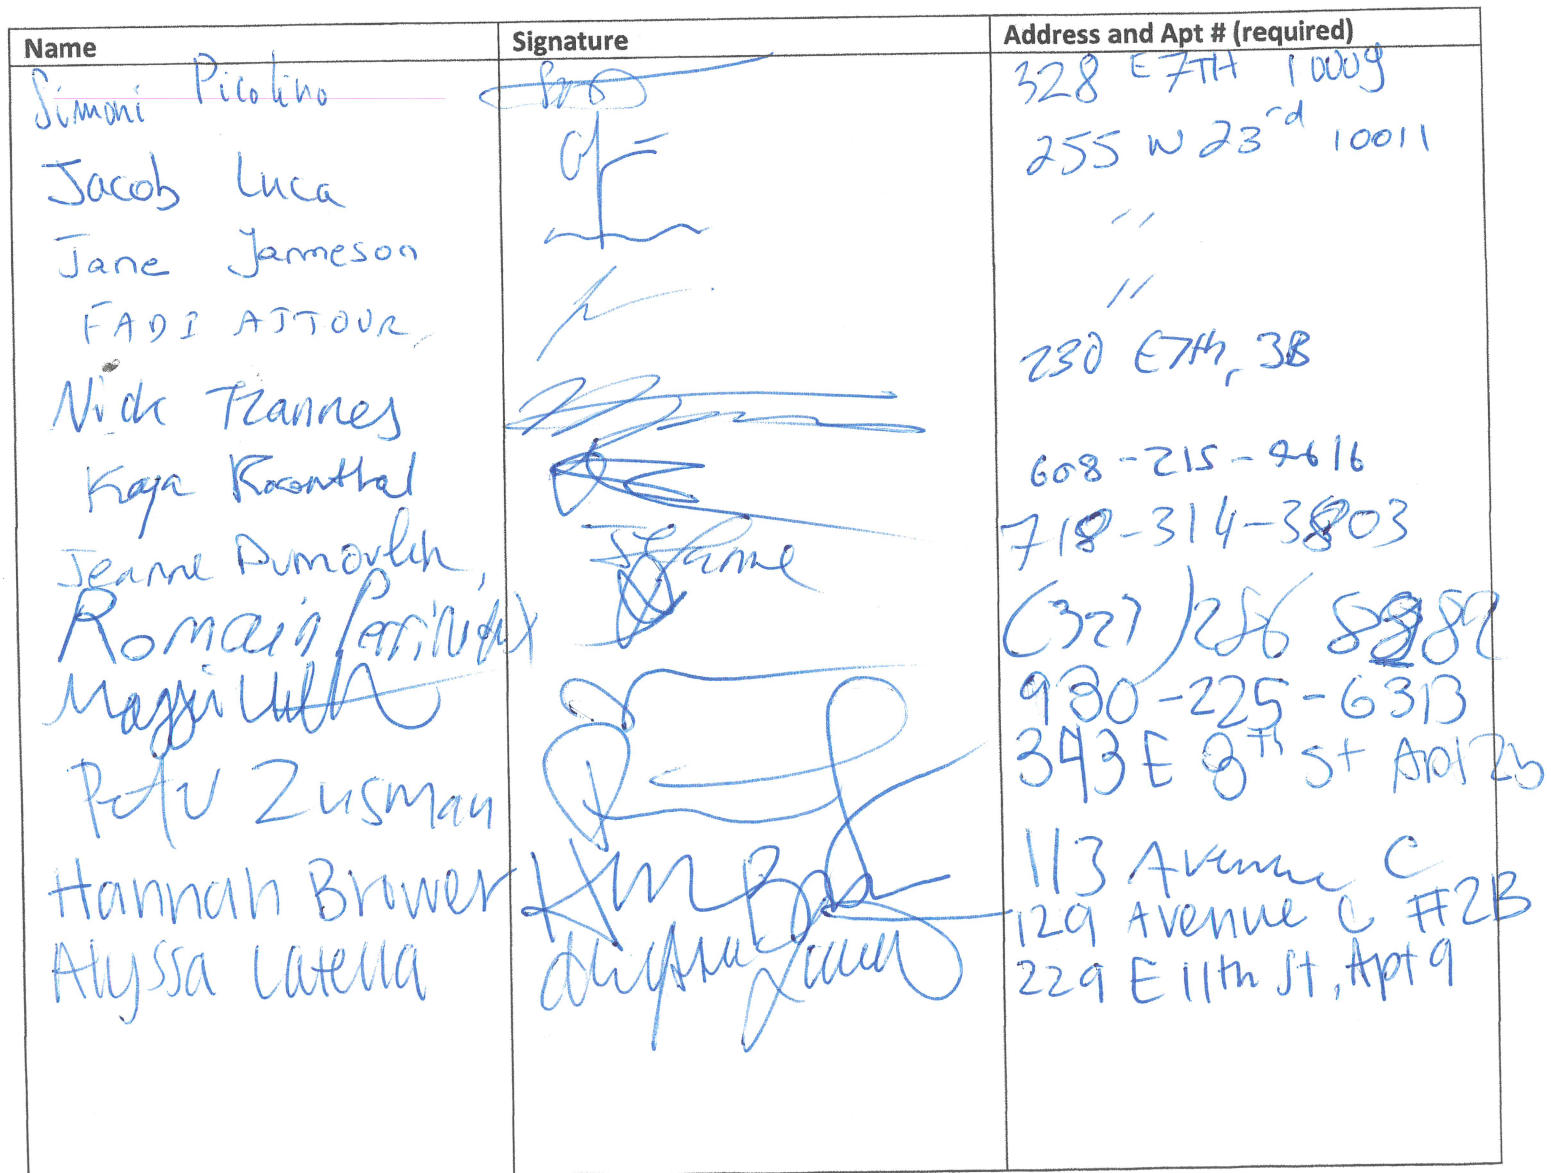 Name Signature Address and Apt # (required)
Simoni Picolino 328 E 7TH 10009
Jacob Luca 255 W 23rd 10011
Jane Jammeson "
FADI "
Nick Tzannes 230 E7th, 3B
Kaya 608-215-9616
Jeanne Dumoulin, Jeanne 718-314-3803
Romain (327) 286
Maggi 930-225-6313
Peter Zusman 343 E 8Th St Apt 2b
Hannah Brower 113 Avenue C
129 Avenue C #2B
Alyssa Latella 229 E 11th St, Apt 9